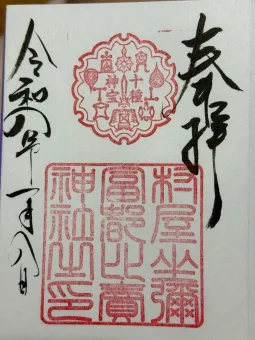 奉拝
十種
神宝
村屋坐彌
冨都比賣
神社之印
令和八年一月八日